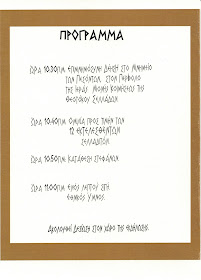 ΠΡΟΓΡΑΜΜΑ
ΩΡΑ 10.30Π.Μ. ΕΠΙΜΝΗΜΟΣΥΝΗ ΔΕΗΣΗ ΣΤΟ ΜΝΗΜΕΙΟ
ΤΩΝ ΠΕΣΟΝΤΩΝ, ΣΤΟΝ ΠΕΡΙΒΟΛΟ
ΤΗΣ ΙΕΡΑΣ ΜΟΝΗΣ ΚΟΙΜΗΣΕΩΣ ΤΗΣ
ΘΕΟΤΟΚΟΥ ΣΕΛΛΑΔΩΝ
ΩΡΑ 10.40Π.Μ. ΟΜΙΛΙΑ ΠΡΟΣ ΤΙΜΗΝ ΤΩΝ
12 ΕΚΤΕΛΕΣΘΕΝΤΩΝ
ΣΕΛΛΑΔΙΤΩΝ
ΩΡΑ 10.50Π.Μ. ΚΑΤΑΘΕΣΗ ΣΤΕΦΑΝΩΝ
ΩΡΑ 11.00Π.Μ. ΕΝΟΣ ΛΕΠΤΟΥ ΣΙΓΗ
ΕΘΝΙΚΟΣ ΥΜΝΟΣ
ΑΚΟΛΟΥΘΕΙ ΔΕΞΙΩΣΗ ΣΤΟΝ ΧΩΡΟ ΤΗΣ ΕΚΔΗΛΩΣΗΣ.